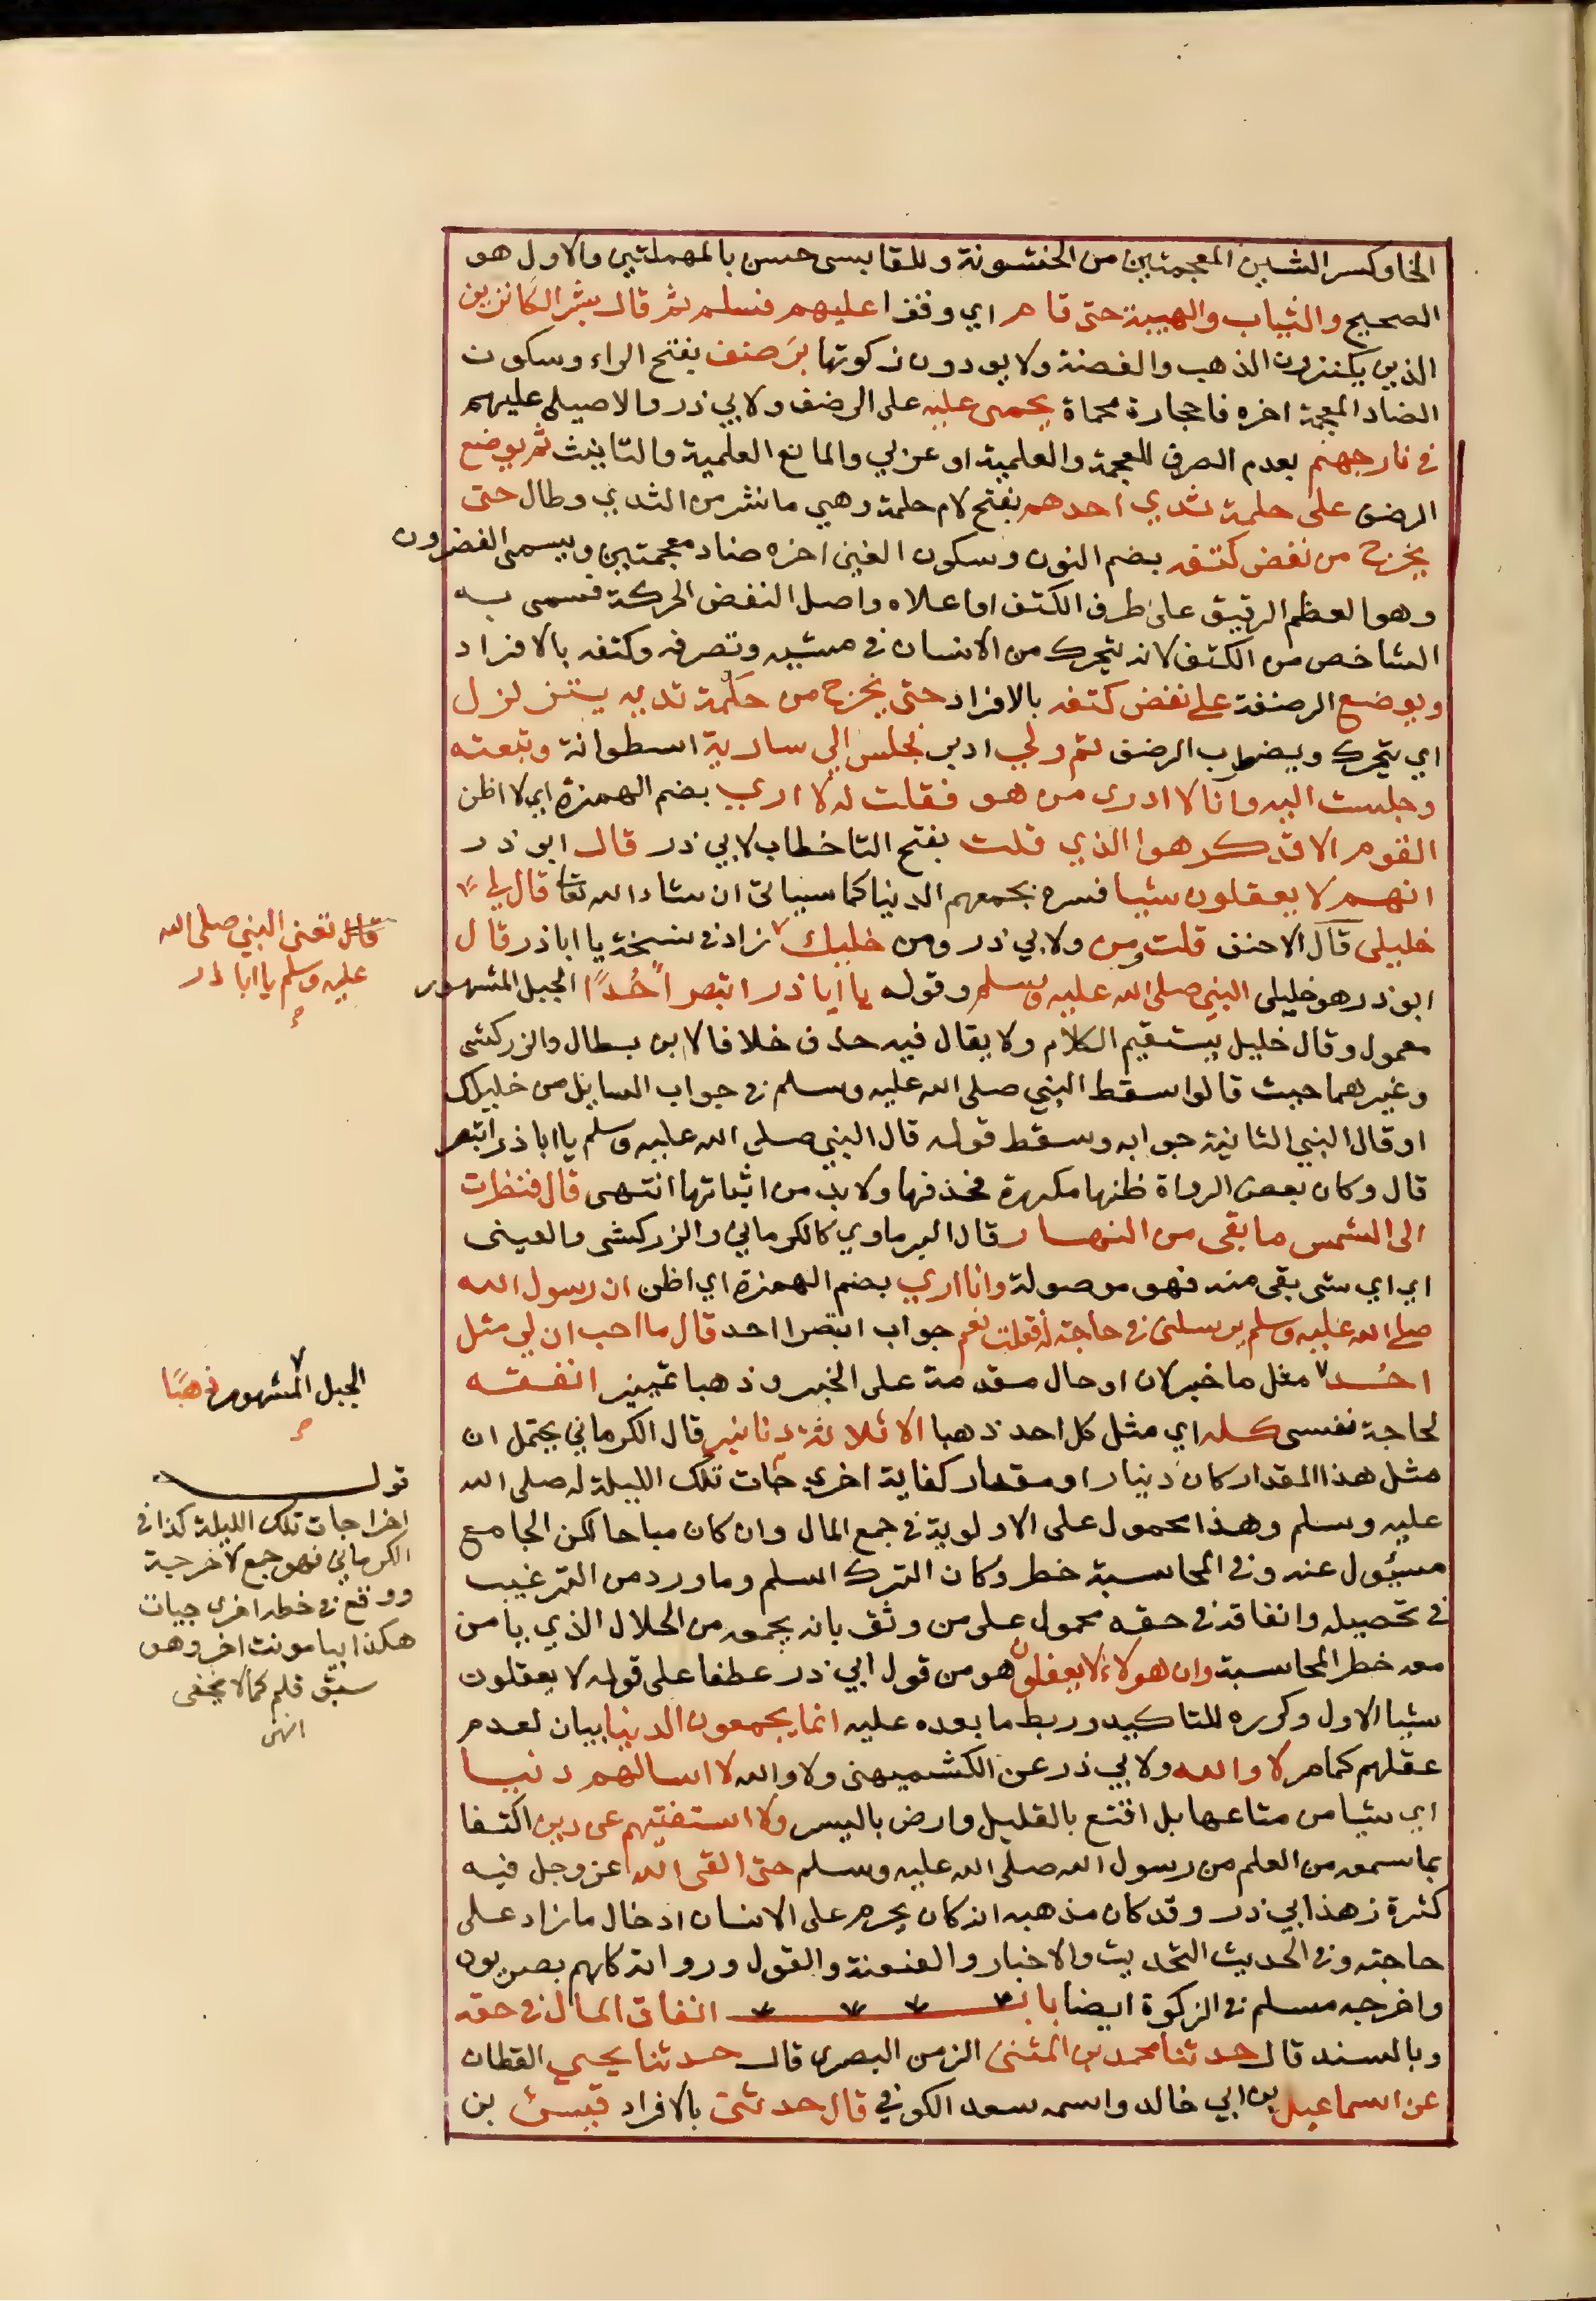 الخا وكسر الشين المعجمتين من الخشونة وللقابسى حسن بالمهملتين والاول هو
الصحيح والثياب والهيبة حتى قام اي وقف عليهم فسلم ثم قال بشر الكانزين
الذين يكنزون الذهب والفضة ولا يودون زكوتها برضف بفتح الراء وسكون
الضاد المعجمة اخره فا حجارة محماة يحمى عليه على الرضف ولابي ذر والاصيلي عليهم
في نار جهنم بعدم الصرف للعجمة والعلمية او عربي والمانع العلمية والتانيث ثم يوضع
الرضف على حلمة ثدي احدهم بفتح لام حلمة وهي ما نشر من الثدي وطال حتى
يخرج من نغض كتفه بضم النون وسكون الغين اخره ضاد معجمتين ويسمى الغضرون
وهو العظم الرقيق على طرف الكتف او اعلاه واصل النغض الحركة فسمى به
الشاخص من الكتف لانه يتحرك من الانسان في مشيه وتصرفه وكتفه بالافراد
ويوضع الرضفة على نغض كتفه بالافراد حتى يخرج من حلمة ثديه يتزلزل
اي يتحرك ويضطرب الرضف ثم ولي ادبر فجلس الي سارية اسطوانة وتبعته
وجلست اليه وانا لا ادرى من هو فقلت له لا اري بضم الهمزة اي لا اظن
القوم الا قد كرهوا الذي قلت بفتح التا خطاب لابي ذر قال ابو ذر
انهم لا يعقلون شيا فسره بجمعهم الدنيا كما سياتى ان شاء الله تعا قال لي
خليلى قال الاحنف قلت ومن ولابي ذر ومن خليلك زاد في نسخة يا ابا ذر قال
ابو ذر هو خليلى النبي صلى الله عليه وسلم وقوله يا ابا ذر اتبصر احُدًا الجبل المشهور
معمول وقال خليل يستقيم الكلام ولا يقال فيه حذف خلافا لابن بطال والزركشى
وغيرهما حيث قالوا سقط النبي صلى الله عليه وسلم في جواب السايل من خليلك
او قال النبي الثانية جوابه وسقط قوله قال النبي صلى الله عليه وسلم يا ابا ذر اتبصر
قال وكان بعض الرواة ظنها مكررة فحذفها ولا بد من اثباتها انتهى قال فنظرت
الى الشمس ما بقى من النهار قال البرماوي كالكرماني والزركشى والعينى
اي اي شى بقى منه فهو موصولة وانا اري بضم الهمزة اي اظن ان رسول الله
صلى الله عليه وسلم يرسلنى في حاجة له قلت نعم جواب اتبصر احد قال ما احب ان لي مثل
احُد مثل ما خبر لان او حال مقدمة على الخبر وذهبا تمييز انفقه
لحاجة نفسى كله اي مثل كل احد ذهبا الا ثلاثة دنانير قال الكرماني يحتمل ان
مثل هذا المقدار كان دينارا او مقدار كفاية اخرى جات تلك الليلة له صلى الله
عليه وسلم وهذا محمول على الاولوية في جمع المال وان كان مباحا لكن الجامع
مسئول عنه وفي المحاسبة خطر وكان الترك اسلم وما ورد من الترغيب
في تحصيله وانفاقه في حقه محمول على من وثق بانه يجمعه من الحلال الذي يامن
معه خطر المحاسبة وان هولاء لا يعقلون هو من قول ابي ذر عطفا على قوله لا يعقلون
شيا الاول وكرره للتاكيد وربط ما بعده عليه انما يجمعون الدنيا بيان لعدم
عقلهم كما مر لا والله ولابي ذر عن الكشميهنى ولا والله لا اسالهم دنيا
اي شيا من متاعها بل اقنع بالقليل وارض باليسر ولا استفتيهم عن دين اكتفا
بما سمعه من العلم من رسول الله صلى الله عليه وسلم حتى القى الله عز وجل فيه
كثرة زهد ابي ذر وقد كان مذهبه انه كان يحرم على الانسان ادخال ما زاد على
حاجته وفي الحديث التحديث والاخبار والعنعنة والقول ورواته كلهم بصريون
واخرجه مسلم في الزكوة ايضا باب انفاق المال في حقه
وبالسند قال حدثنا محمد بن المثنى الزمن البصرى قال حدثنا يحيى القطان
عن اسماعيل بن ابي خالد واسمه سعد الكوفي قال حدثنى بالافراد قيس بن
قال تعنى النبي صلى الله
عليه وسلم يا ابا ذر
الجبل المشهور ذهبًا
قوله
اخراجات تلك الليلة كذا في
الكرماني فهو جمع لاخرجة
ووقع في خطه اخرى جيات
هكذا بيا مونث اخر وهو
سبق قلم كما لا يخفى
انتهى